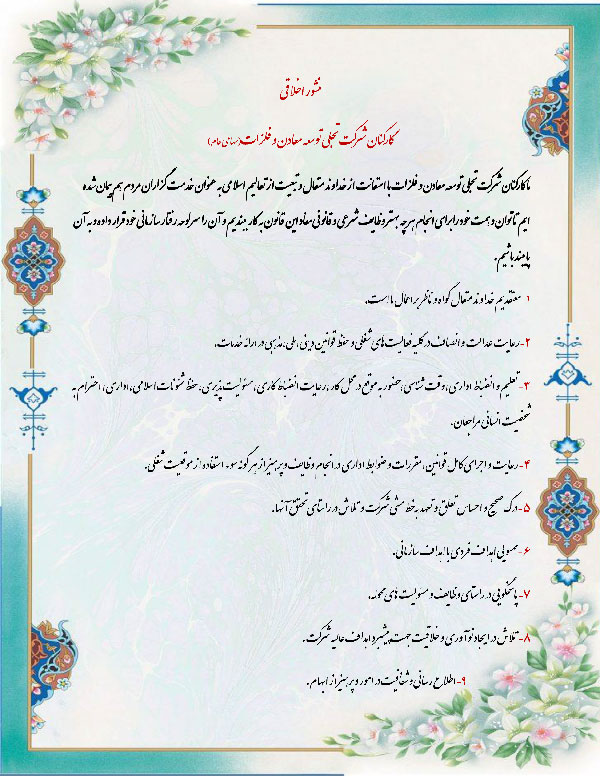 منشور اخلاقی
کارکنان شرکت تجلی توسعه معادن و فلزات (سهامی عام)
ما کارکنان شرکت تجلی توسعه معادن و فلزات با استعانت از خداوند متعال و تبعیت از تعالیم اسلامی به عنوان خدمت گزاران مردم هم پیمان شده
ایم تا توان و همت خود را برای انجام هر چه بهتر وظایف شرعی و قانونی مفاد این قانون به کار ببندیم و آن را سرلوحه رفتار سازمانی خود قرار داده و به آن
پایبند باشیم.
۱ معتقدیم خداوند متعال گواه و ناظر بر اعمال ما است.
۲- رعایت عدالت و انصاف در کلیه فعالیت های شغلی و حفظ قوانین دینی، ملی، مذهبی در ارائه خدمات.
۳- تعلیم و انضباط اداری، وقت شناسی، حضور به موقع در محل کار، رعایت انضباط کاری، مسئولیت پذیری، حفظ شئونات اسلامی، اداری، احترام به
شخصیت انسانی مراجعان.
۴- رعایت و اجرای کامل قوانین، مقررات و ضوابط اداری در انجام وظایف و پرهیز از هر گونه سوء استفاده از موقعیت شغلی.
۵- درک صحیح و احساس تعلق و تعهد به خط مشی شرکت و تلاش در راستای تحقق آنها.
۶- همسویی اهداف فردی با اهداف سازمانی.
۷- پاسخگویی در راستای وظایف و مسئولیت های محوله.
۸- تلاش در ایجاد نوآوری و خلاقیت جهت پیشبرد اهداف عالیه شرکت.
۹- اطلاع رسانی و شفافیت در امور و پرهیز از ابهام.